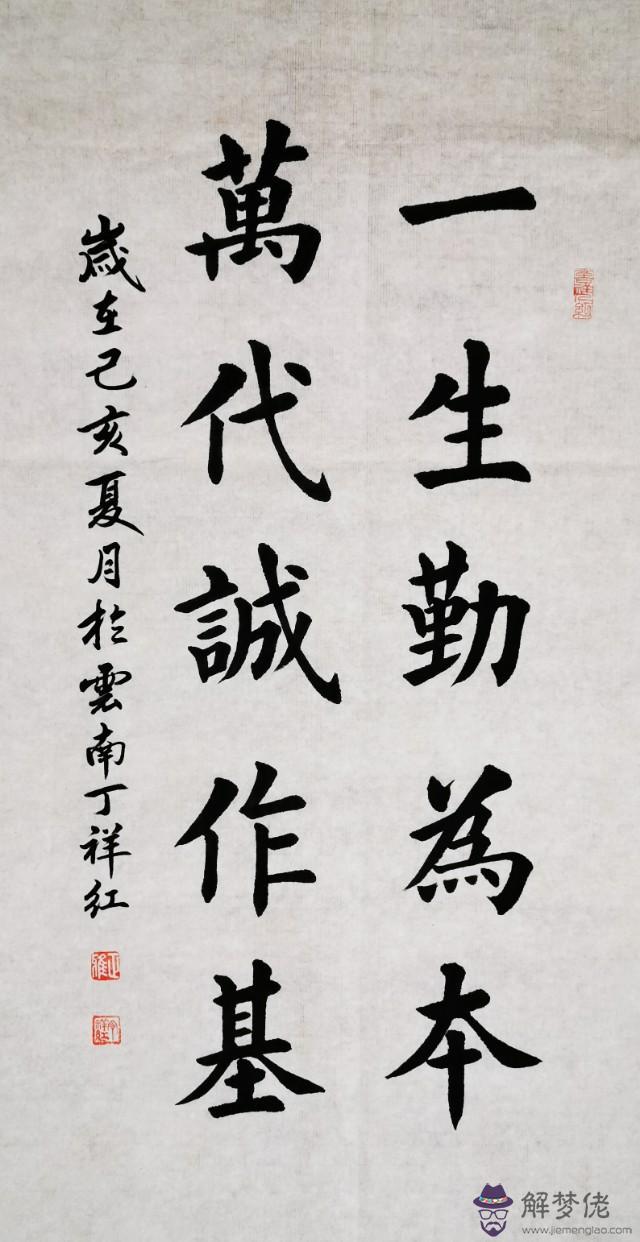 一生勤為本
萬代誠作基
歲在己亥夏月於雲南丁祥紅
解梦佬
www.jiemenglao.com